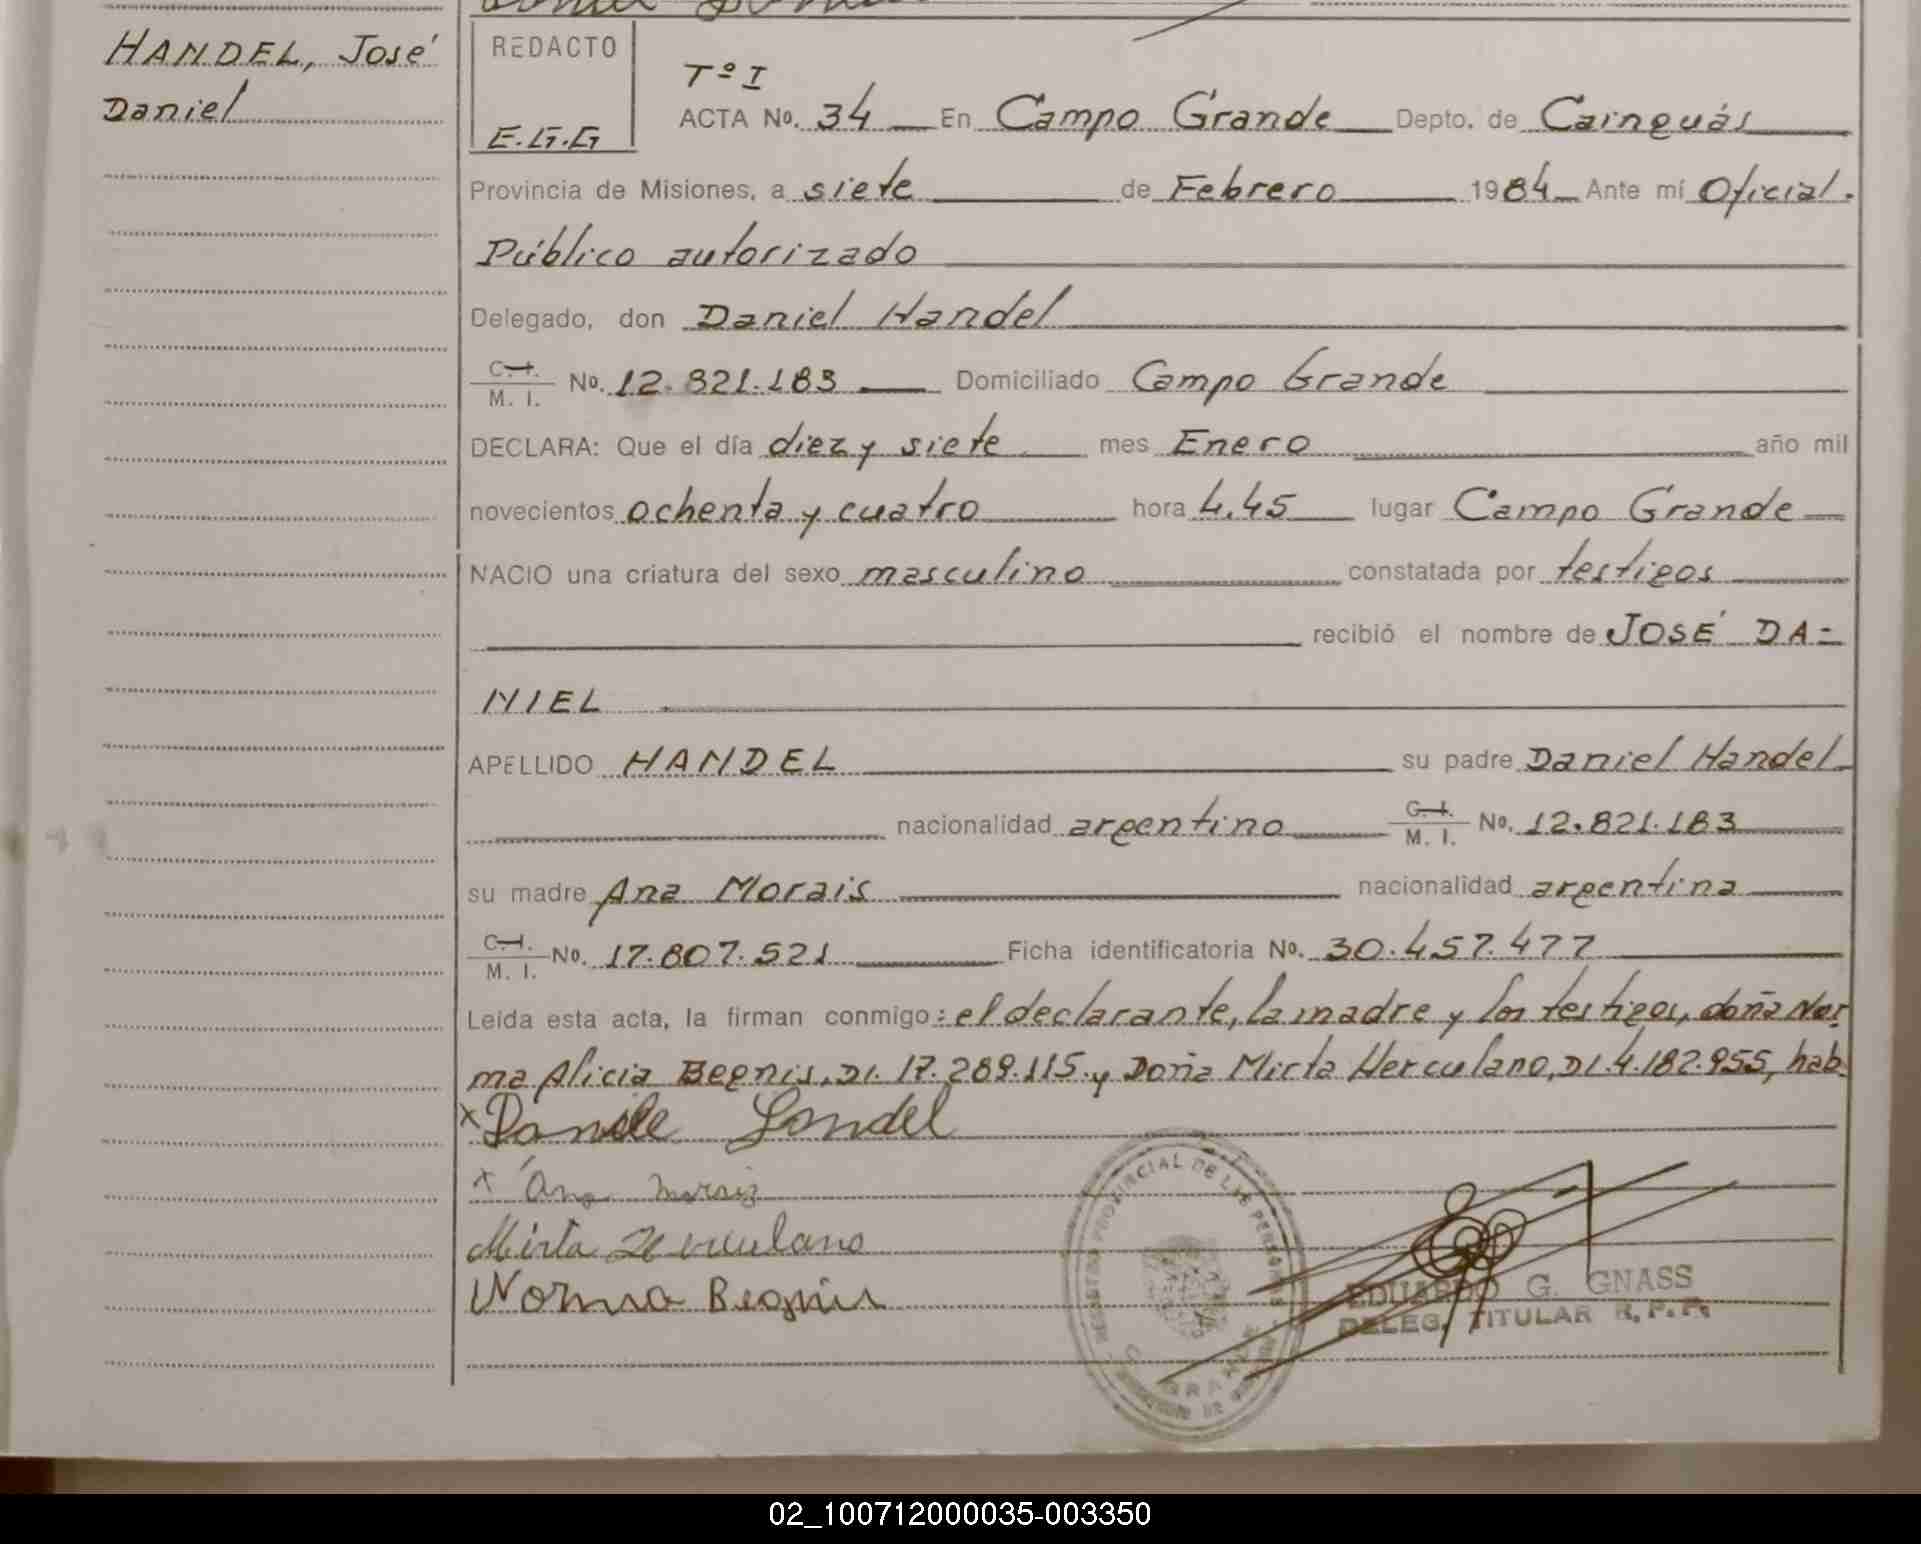 HANDEL, José
Daniel
REDACTO
E.G.G
Tº I
ACTA Nº. 34 En Campo Grande Depto. de Cainguás
Provincia de Misiones, a siete de Febrero 1984 Ante mí Oficial.
Público autorizado
Delegado, don Daniel Handel
C.I.
M. I. Nº. 12.821.183 Domiciliado Campo Grande
DECLARA: Que el día diez y siete mes Enero año mil
novecientos ochenta y cuatro hora 4.45 lugar Campo Grande
NACIO una criatura del sexo masculino constatada por testigos
recibió el nombre de JOSÉ DA-
NIEL
APELLIDO HANDEL su padre Daniel Handel
nacionalidad argentino C.I.
M. I. Nº. 12.821.183
su madre Ana Morais nacionalidad argentina
C.I.
M. I. Nº. 17.807.521 Ficha identificatoria Nº. 30.457.477
Leída esta acta, la firman conmigo: el declarante, la madre y los testigos, doña Nor-
ma Alicia Begnis, DI. 17.289.115 y Doña Mirta Herculano, DI. 4.182.955, hab.
x Daniel Handel
x Ana Moraiz
Mirta Herculano
Norma Begnis
REGISTRO PROVINCIAL DE LAS PERSONAS
EDUARDO G. GNASS
DELEG. TITULAR R.P.P.
02_100712000035-003350